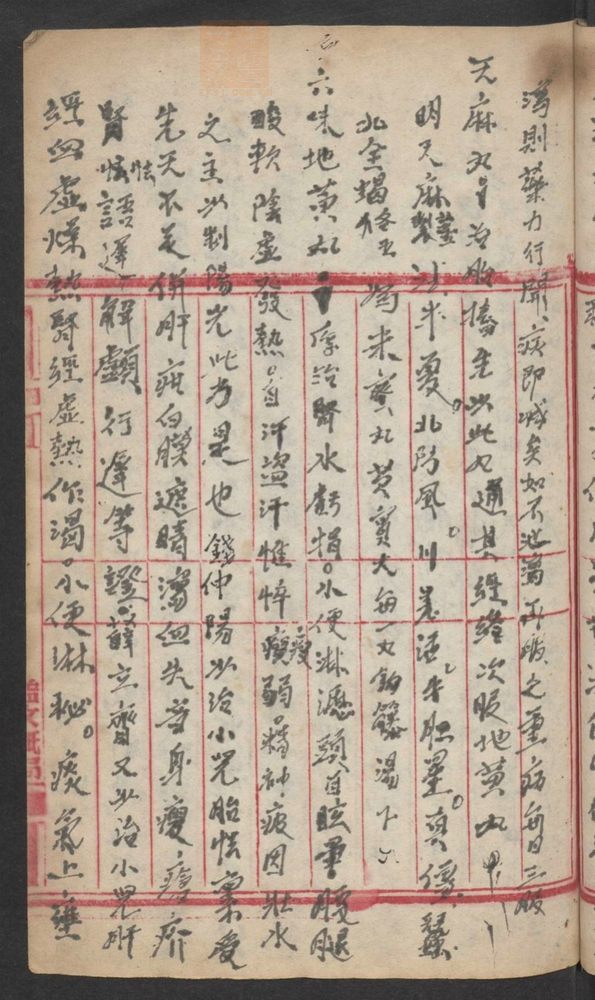 瀉則藥力行開、疾即減矣如不泄瀉再服之重病每日三服
天麻丸 治胎搐先以此丸通其經絡次服地黃丸
明天麻 製 半夏。北防風。川羌活。牛胆星。真僵蠶
北全蝎 為末蜜丸芡實大每一丸鈎籐湯下
六味地黃丸 治腎水虧損。小便淋瀝頭目眩暈腰腿
酸軟陰虛發熱。自汗盜汗憔悴瘦弱。精神疲困壯水
之主以制陽光此方是也 錢仲陽以治小兒胎怯稟受
先天不足併肝疳白膜遮睛瀉血失音身瘦瘡疥
腎怯語遲解顱行遲等證。薛立齋又以治小兒肝
經血虛燥熱腎經虛熱作渴。小便淋秘。痰氣上壅